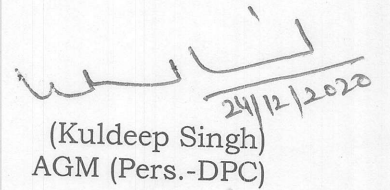 24/12/2020
(Kuldeep Singh)
AGM (Pers.-DPC)